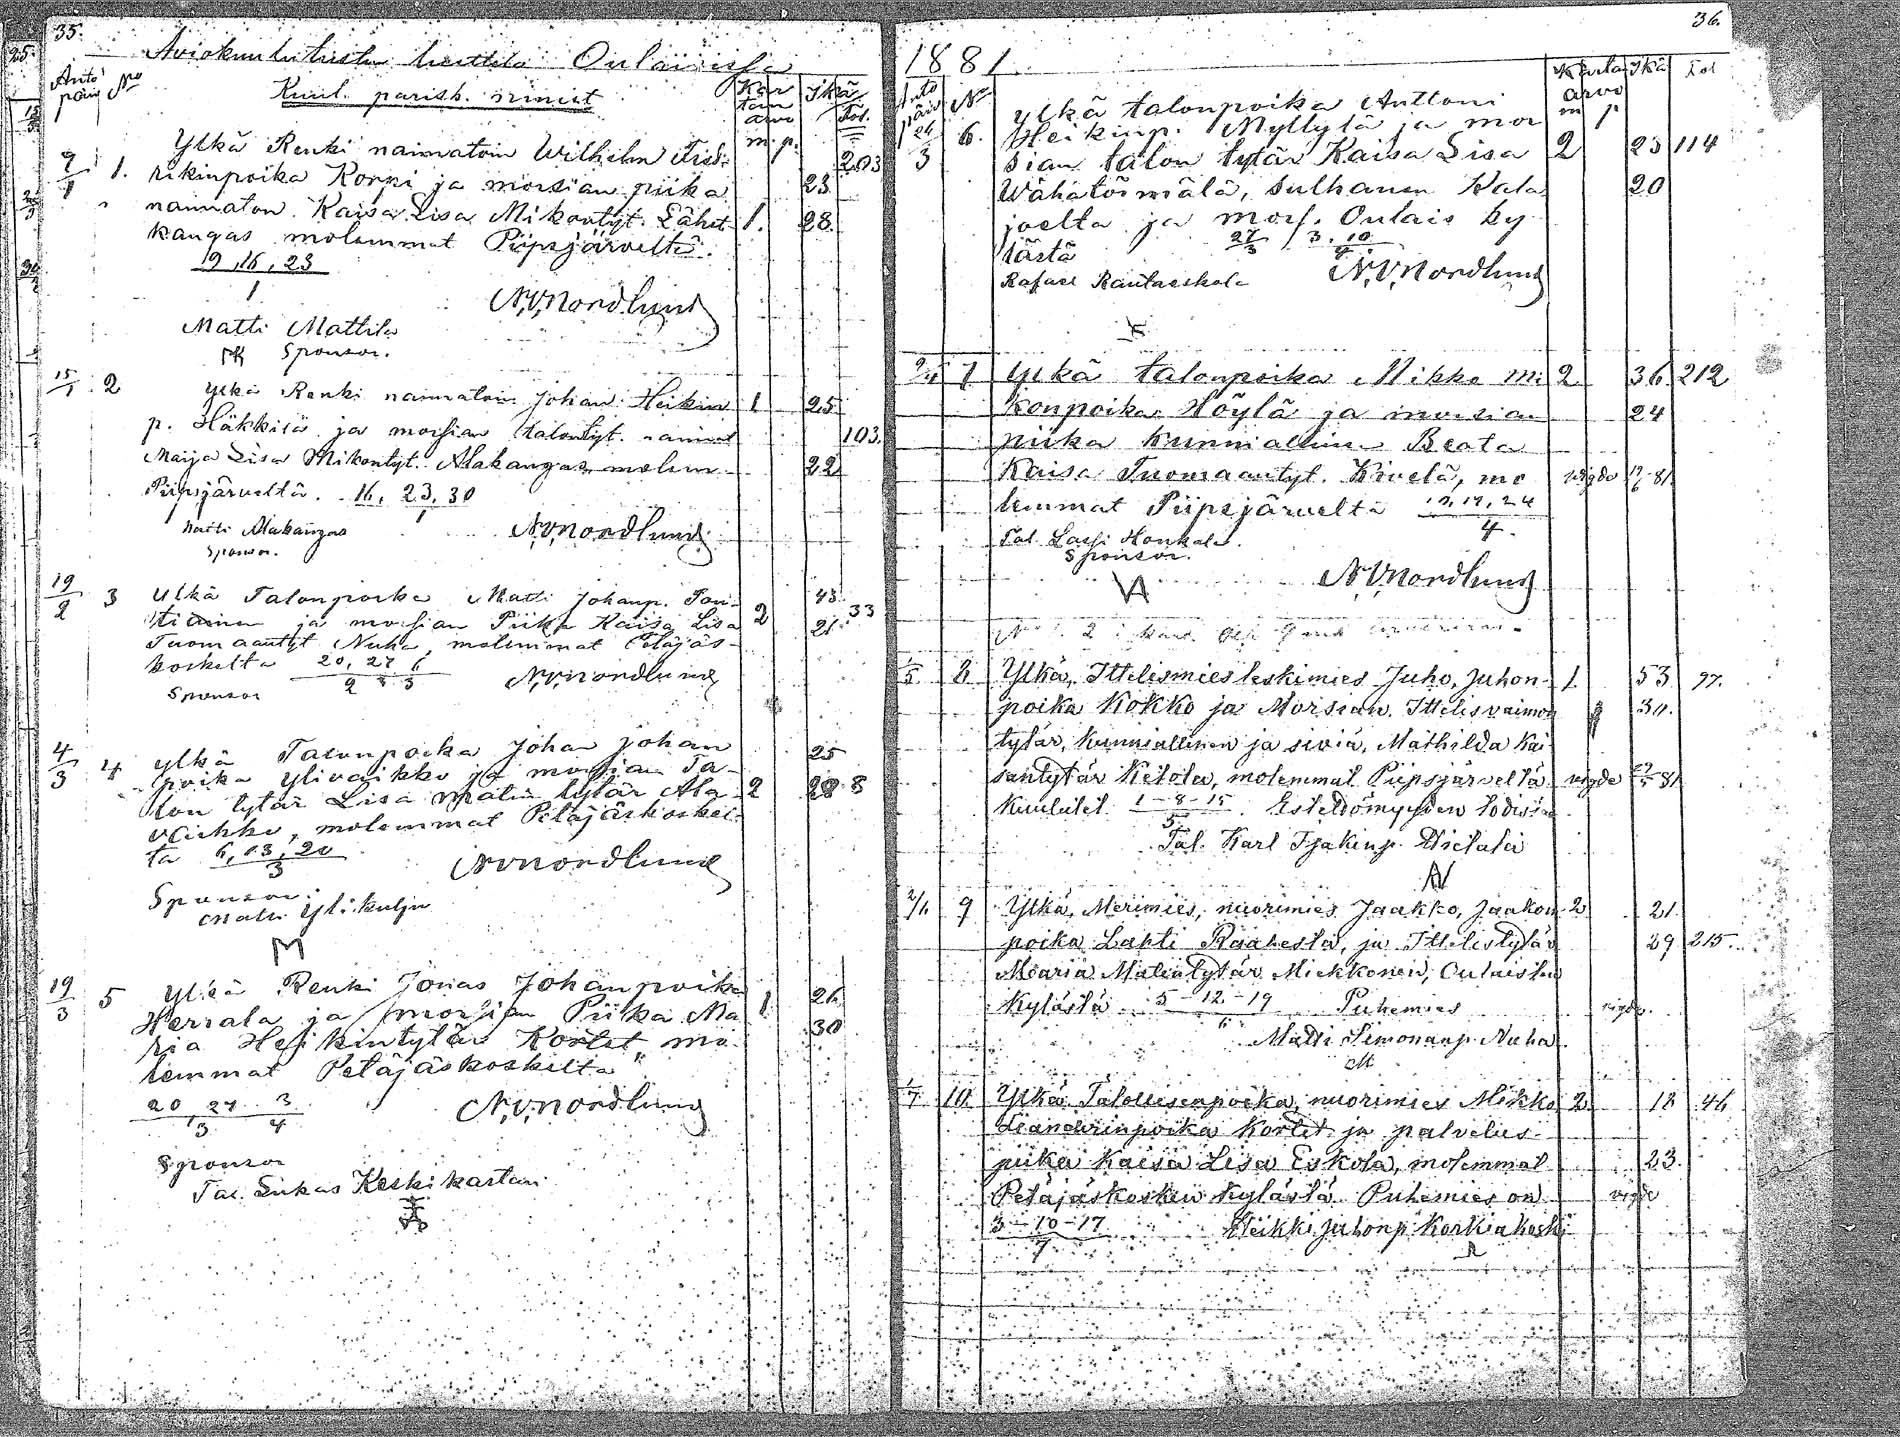 35.
Aviokuulutusten luettelo Oulaisissa
Anto päiv
No
Kuul. parisk. nimet
Kar tan arvo
m. p.
Ikä
Fol.
7/1 1. Ylkä Renki naimatoin Wilhelm Fred- 203
rikinpoika Korpi ja morsian piika 23
naimaton Kaisa Lisa Mikontyt. Lähet- 1. 28
kangas molemmat Piipsjärveltä.
9, 16, 23
1
N.V. Nordlund
Matti Mattila
Sponsor.
15/1 2 Ylkä Renki naimatoin Johan Heikin 1 25
p. Häkkilä ja morsian talontyt. 103.
Maija Lisa Mikontyt. Alakangas molem- 22
Piipsjärveltä. 16, 23, 30
1
Matti Alakangas
Sponsor.
N.V. Nordlund
19/2 3 Ylkä Talonpoika Matti Johanp. 43
ja morsian Piika Kaisa Lisa 2 21 33
Tuomaantyt Nuha, molemmat Petäjäs-
koskelta 20, 27 6
2 3
N.V. Nordlund
Sponsor
4/3 4 Ylkä Talonpoika Johan Johan 25
poika Ylivaikko ja morsian Ta-
lon tytär Lisa Matin tytär Ala- 2 28 8
vaikko, molemmat Petäjäskoskel-
ta 6, 13, 20
3
N.V. Nordlund
Sponsor.
Matti Ylikulju
M
19/3 5 Ylkä Renki Jonas Johanpoika 1 26
Herrala ja morsian Piika Ma 30
ria Heikintytär Kortet mo
lemmat Petäjäskoskelta
20, 27 3
3 4
N.V. Nordlund
Sponsor
Tal. Lukas Keskikastari
36.
1881.
Anto päiv
No
Kartan arvo
m p
Ikä
Fol
24/3 6. Ylkä talonpoika Anttoni
Heikinp. Myllylä ja mor
sian talon tytär Kaisa Lisa 2 23 114
Wähätörmälä, sulhanen Kala 20
joelta ja mors. Oulais ky
lästä 27/3, 3. 10/4
N.V. Nordlund
7 Ylkä talonpoika Mikko Mi 2 36 212
konpoika Höylä ja morsian 24
piika kunniallinen Beata
Kaisa Tuomaantyt. Kivelä, mo vigde 12/6 81.
lemmat Piipsjärveltä 17, 24
4.
Tal. Lassi Honkala.
Sponsor.
N.V. Nordlund
1/5 8 Ylkä, Ittelismies leskimies Juho, Juhon- 1 53 97.
poika Kokko ja Morsian, Ittelisvaimon 30.
tytär, kunniallinen ja siviä, Mathilda Kai
santytär Ketola, molemmat Piipsjärveltä vigde 81
Kuulutet. 1-8-15 Esteettömyyden todistaa
5.
Tal. Karl Isakinp. Hietala
9 Ylkä, Merimies, nuorimies Jaakko, Jaakon 2 21.
poika Lahti Raahesta, ja Ittelistytär 29 215.
Maria Matintytär Miekkonen, Oulaisten
Kylästä 5-12-19 Puhemies vigde.
6
Matti Simonanp. Nuha.
1/7 10 Ylkä Talollisenpoika, nuorimies Mikko 2 18 46
Leanderinpoika Kortet ja palvelus-
piika Kaisa Lisa Eskola, molemmat 23.
Petäjäskosken kylästä. Puhemies on vigde
3-10-17
7
Heikki Juhonp. Korkiakoski